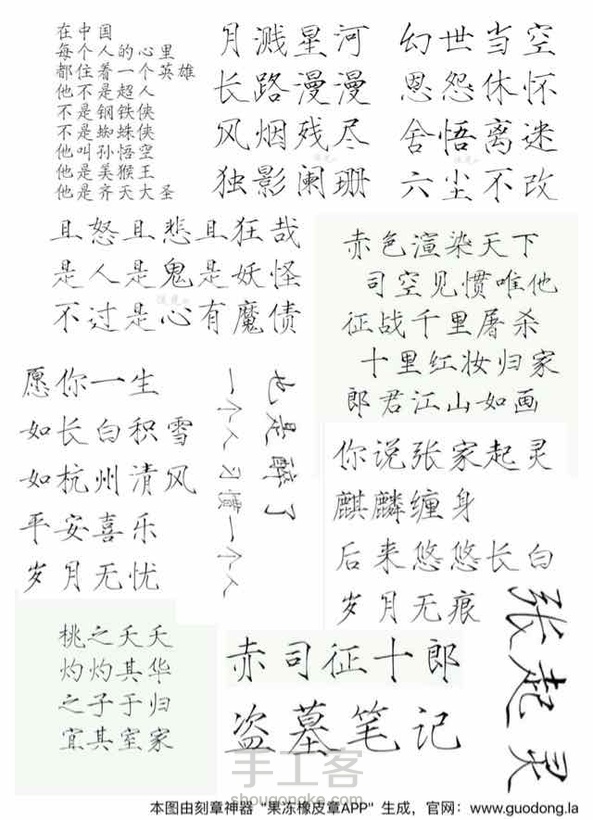 在中国
每个人的心里
都住着一个英雄
他不是超人
不是钢铁侠
不是蜘蛛侠
他叫孙悟空
他是美猴王
他是齐天大圣
月溅星河
长路漫漫
风烟残尽
独影阑珊
幻世当空
恩怨休怀
舍悟离迷
六尘不改
且怒且悲且狂哉
是人是鬼是妖怪
不过是心有魔债
赤色渲染天下
司空见惯唯他
征战千里屠杀
十里红妆归家
郎君江山如画
愿你一生
如长白积雪
如杭州清风
平安喜乐
岁月无忧
一个人习惯一个人
也是醉了
你说张家起灵
麒麟缠身
后来悠悠长白
岁月无痕
张起灵
桃之夭夭
灼灼其华
之子于归
宜其室家
赤司征十郎
盗墓笔记
手工客
shougongke.com
本图由刻章神器"果冻橡皮章APP"生成，官网：www.guodong.la